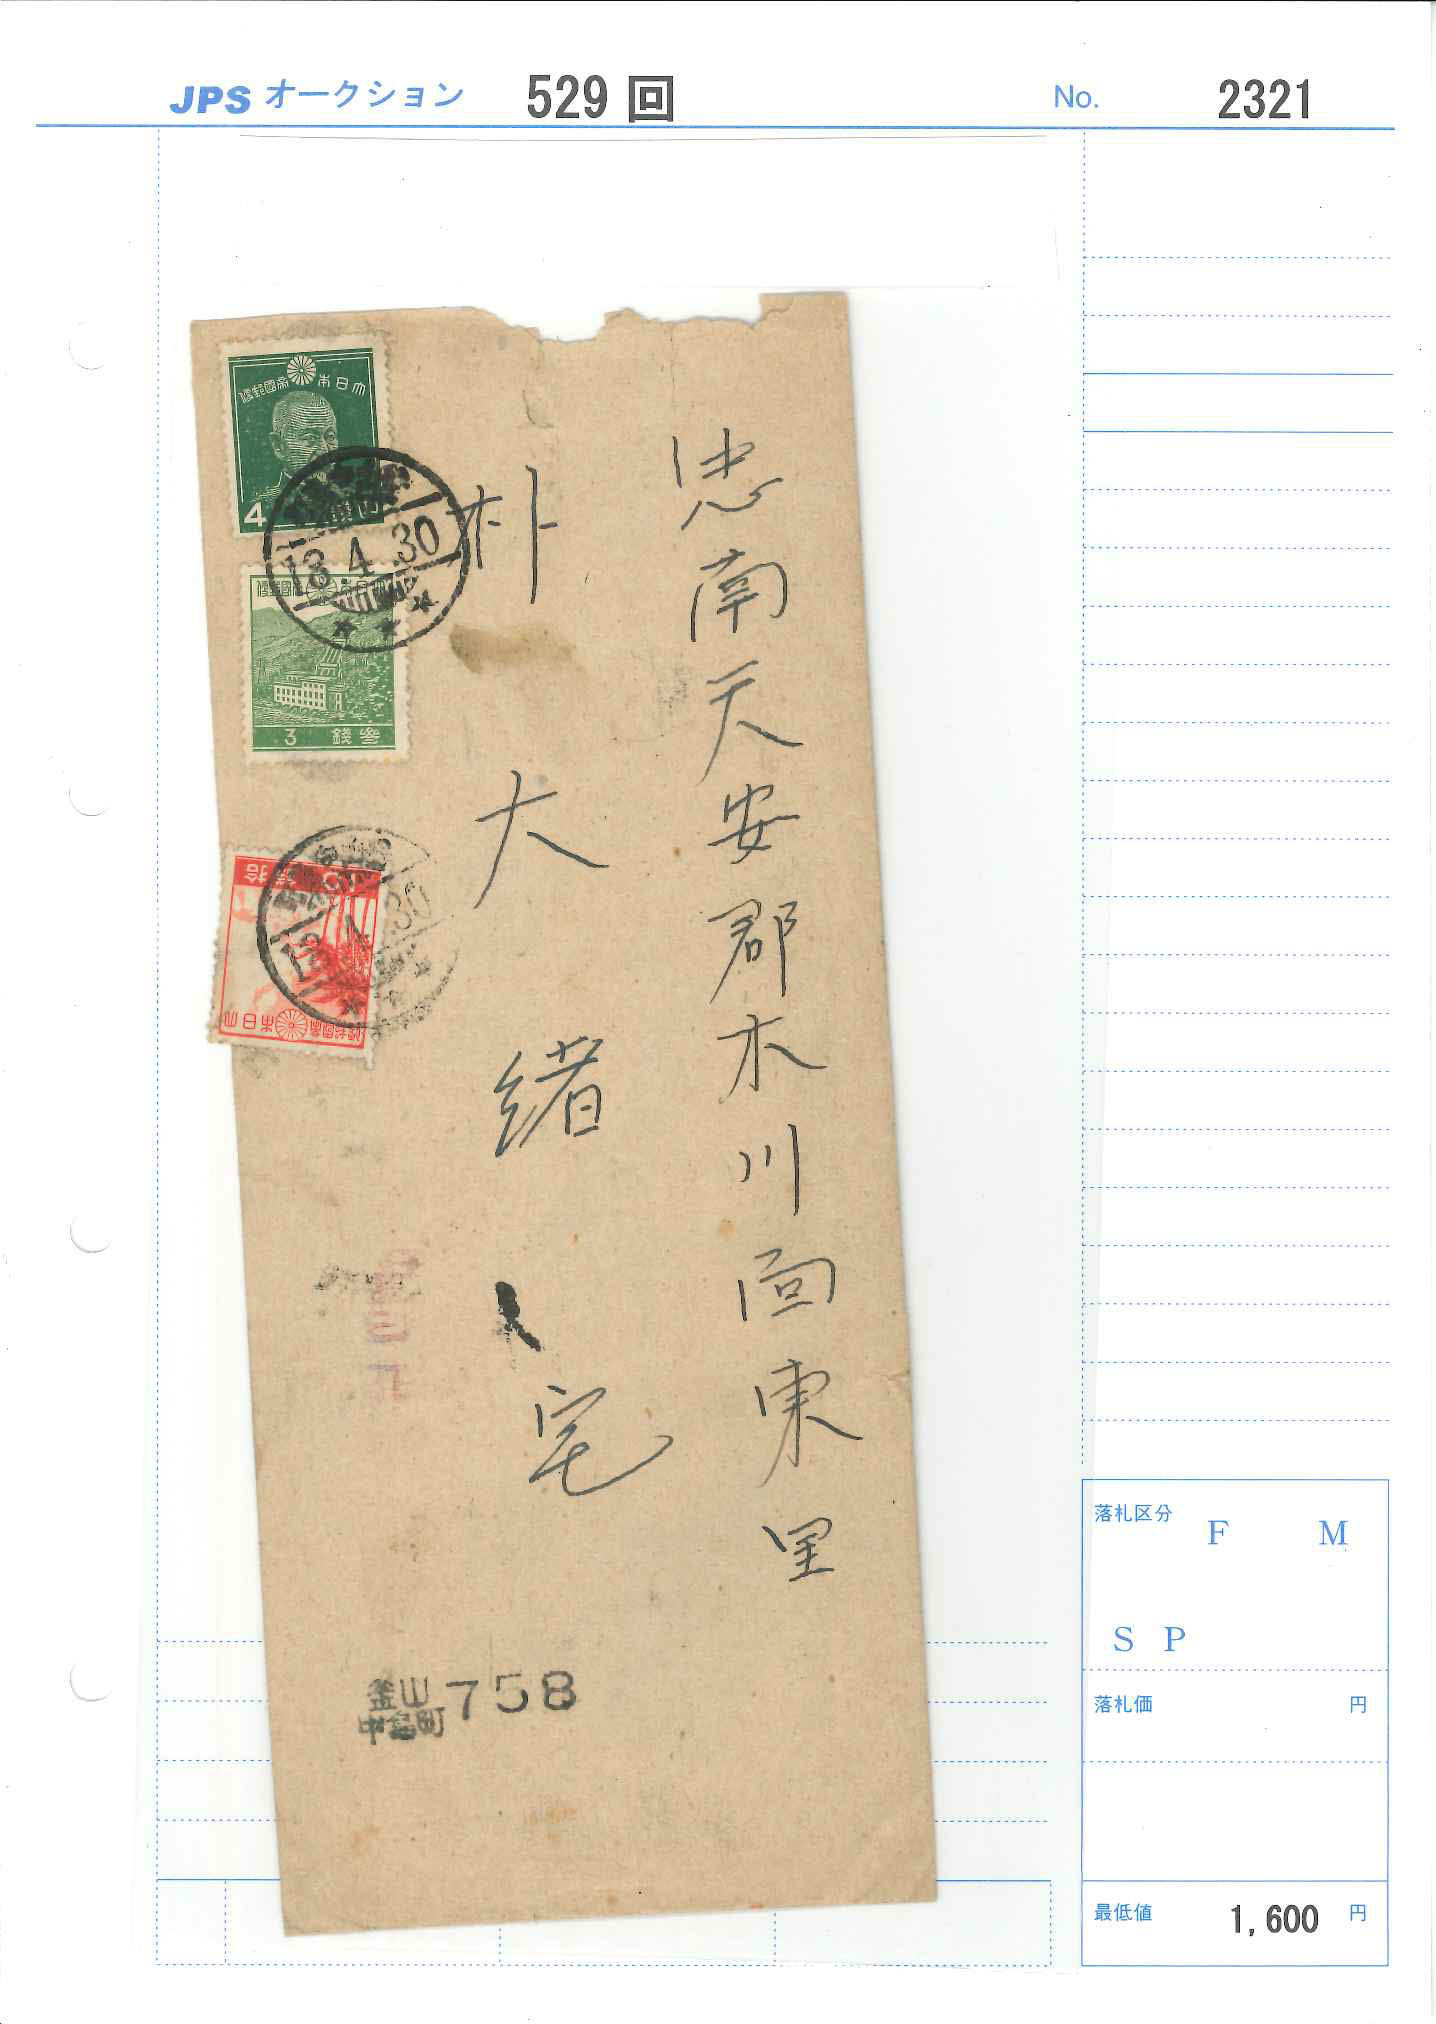 JPS オークション 529 回 No. 2321
大日本帝國郵便
4
18.4.30
大日本帝國郵便
3 錢參
18.4.30
大日本帝國郵便
忠南天安郡木川面東里
朴大緖宅
釜山
中島町
758
落札区分
F M
S P
落札価 円
最低値 1,600 円